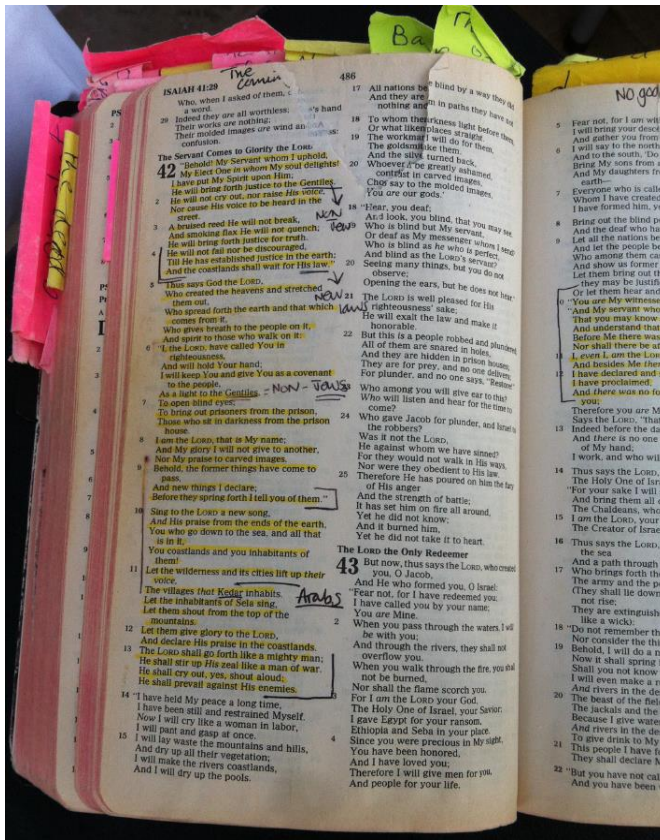 The
ISAIAH 41:29
486
Who, when I asked of them,
a word.
29 Indeed they are all worthless;
Their works are nothing;
Their molded images are wind an
confusion.
The Servant Comes to Glorify the LORD
42 "Behold! My Servant whom I uphold,
My Elect One in whom My soul delights!
I have put My Spirit upon Him;
He will bring forth justice to the Gentiles.
2 He will not cry out, nor raise His voice,
Nor cause His voice to be heard in the
street.
3 A bruised reed He will not break,
And smoking flax He will not quench;
He will bring forth justice for truth.
4 He will not fail nor be discouraged,
Till He has established justice in the earth;
And the coastlands shall wait for His law."
5 Thus says God the LORD,
Who created the heavens and stretched
them out,
Who spread forth the earth and that which
comes from it,
Who gives breath to the people on it,
And spirit to those who walk on it:
6 "I, the LORD, have called You in
righteousness,
And will hold Your hand;
I will keep You and give You as a covenant
to the people,
As a light to the Gentiles, = NON-Jews
7 To open blind eyes,
To bring out prisoners from the prison,
Those who sit in darkness from the prison
house.
8 I am the LORD, that is My name;
And My glory I will not give to another,
Nor My praise to carved images.
9 Behold, the former things have come to
pass,
And new things I declare;
Before they spring forth I tell you of them."
10 Sing to the LORD a new song,
And His praise from the ends of the earth,
You who go down to the sea, and all that
is in it,
You coastlands and you inhabitants of
them!
11 Let the wilderness and its cities lift up their
voice,
The villages that Kedar inhabits.
Arabs
Let the inhabitants of Sela sing,
Let them shout from the top of the
mountains.
12 Let them give glory to the LORD,
And declare His praise in the coastlands.
13 The LORD shall go forth like a mighty man;
He shall stir up His zeal like a man of war.
He shall cry out, yes, shout aloud;
He shall prevail against His enemies.
14 "I have held My peace a long time,
I have been still and restrained Myself.
Now I will cry like a woman in labor,
I will pant and gasp at once.
15 I will lay waste the mountains and hills,
And dry up all their vegetation;
I will make the rivers coastlands,
And I will dry up the pools.
NON
Jew
New
laws
17 All nations be
And they are
nothing and
18 To whom the
Or what liken
19 The workmar
The goldsmit
And the silve
20 Whoever
blind by a way they did
m in paths they have not
rkness light before them,
places straight.
I will do for them,
ke them.
turned back,
be greatly ashamed,
st in carved images,
say to the molded images,
'You are our gods.'
18 "Hear, you deaf;
And look, you blind, that you may see.
19 Who is blind but My servant,
Or deaf as My messenger whom I send?
Who is blind as he who is perfect,
And blind as the LORD's servant?
20 Seeing many things, but you do not
observe;
Opening the ears, but he does not hear."
21 The LORD is well pleased for His
righteousness' sake;
He will exalt the law and make it
honorable.
22 But this is a people robbed and plundered;
All of them are snared in holes,
And they are hidden in prison houses;
They are for prey, and no one delivers;
For plunder, and no one says, "Restore!"
Who among you will give ear to this?
Who will listen and hear for the time to
come?
24 Who gave Jacob for plunder, and Israel to
the robbers?
Was it not the LORD,
He against whom we have sinned?
For they would not walk in His ways,
Nor were they obedient to His law.
25 Therefore He has poured on him the fury
of His anger
And the strength of battle;
It has set him on fire all around,
Yet he did not know;
And it burned him,
Yet he did not take it to heart.
The LORD the Only Redeemer
43 But now, thus says the LORD, who created
you, O Jacob,
And He who formed you, O Israel:
"Fear not, for I have redeemed you;
I have called you by your name;
You are Mine.
2 When you pass through the waters, I will
be with you;
And through the rivers, they shall not
overflow you.
When you walk through the fire, you shall
not be burned,
Nor shall the flame scorch you.
3 For I am the LORD your God,
The Holy One of Israel, your Savior;
I gave Egypt for your ransom,
Ethiopia and Seba in your place.
4 Since you were precious in My sight,
You have been honored,
And I have loved you;
Therefore I will give men for you,
And people for your life.
No god
5 Fear not, for I am wit
I will bring your desc
And gather you from
6 I will say to the north
And to the south, 'Do
Bring My sons from
And My daughters fr
earth—
7 Everyone who is calle
Whom I have created
I have formed him, y
8 Bring out the blind p
And the deaf who ha
9 Let all the nations be
And let the people be
Who among them ca
And show us former
Let them bring out th
they may be justifi
Or let them hear and
10 "You are My witnesse
"And My servant who
That you may know
And understand that
Before Me there was
Nor shall there be af
11 I, even I, am the Lor
And besides Me ther
12 I have declared and
I have proclaimed,
And there was no fo
you;
Therefore you are M
Says the LORD, "that
13 Indeed before the da
And there is no one
of My hand;
I work, and who wil
14 Thus says the LORD,
The Holy One of Isr
"For your sake I will
And bring them all
The Chaldeans, who
15 I am the LORD, your
The Creator of Israe
16 Thus says the LORD,
the sea
And a path through
17 Who brings forth the
The army and the p
(They shall lie down
not rise;
They are extinguish
like a wick):
18 "Do not remember th
Nor consider the thi
19 Behold, I will do a n
Now it shall spring
Shall you not know
I will even make a r
And rivers in the de
20 The beast of the fiel
The jackals and the
Because I give wate
And rivers in the de
To give drink to My
21 This people I have f
They shall declare M
22 "But you have not cal
And you have been